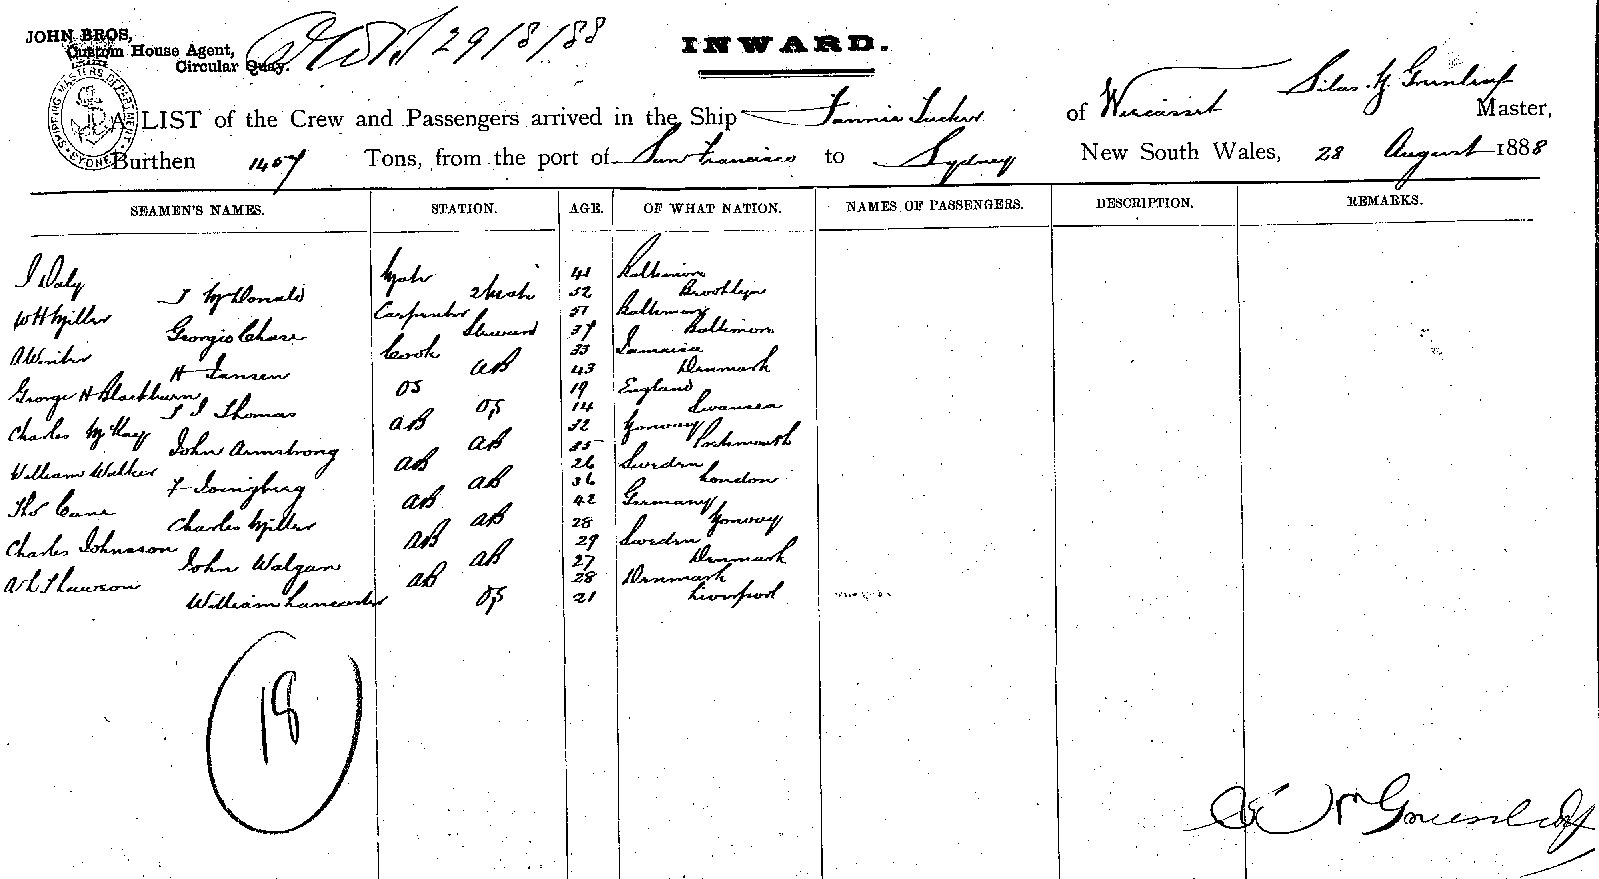 JOHN BROS,
Custom House Agent,
Circular Quay.
29/8/88
INWARD.
SHIPPING MASTERS DEPARTMENT
SYDNEY
A LIST of the Crew and Passengers arrived in the Ship Fannie Tucker of Wiscasset Silas Greenleaf Master,
Burthen 1407 Tons, from the port of San Francisco to Sydney New South Wales, 28 August 1888
SEAMEN'S NAMES. STATION. AGE. OF WHAT NATION. NAMES OF PASSENGERS. DESCRIPTION. REMARKS.
J Daly Mate 41 Baltimore
J McDonald 2 Mate 52 Brooklyn
W H Miller Carpenter 51 Baltimore
Georgio Chase Steward 37 Baltimore
A Winter Cook 33 Jamaica
H Jansen AB 43 Denmark
George H Blackburn OS 19 England
J J Thomas OS 14 Swansea
Charles McKay AB 32 Norway
John Armstrong AB 35 Portsmouth
William Walker AB 26 Sweden
F AB 36 London
Thos Cane AB 42 Germany
Charles Miller AB 28 Norway
Charles Johnsson AB 29 Sweden
John Walgan AB 27 Denmark
AB 28 Denmark
William Lancaster OS 21 Liverpool
18
Greenleaf